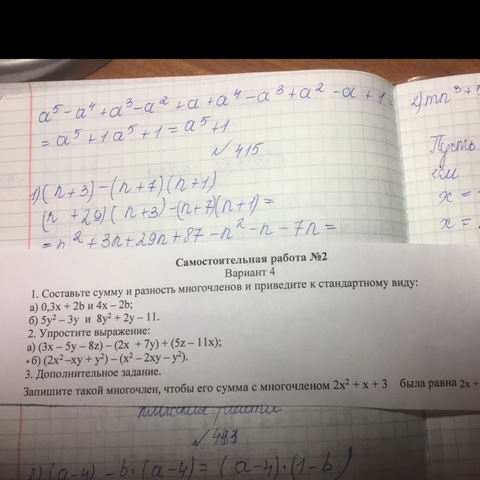 a⁵ − a⁴ + a³ − a² + a + a⁴ − a³ + a² − a + 1 =
= a⁵ + 1 a⁵ + 1 = a⁵ + 1
№ 415
1) (n + 3) − (n + 7) (n + 1)
(n + 29) (n + 3) − (n + 7)(n + 1) =
= n² + 3n + 29n + 87 − n² − n − 7n =
2) mn³ +
Пусть
см
x =
x =
Самостоятельная работа №2
Вариант 4
1. Составьте сумму и разность многочленов и приведите к стандартному виду:
а) 0,3x + 2b и 4x – 2b;
б) 5y² – 3y и 8y² + 2y – 11.
2. Упростите выражение:
а) (3x – 5y – 8z) – (2x + 7y) + (5z – 11x);
б) (2x² –xy + y²) – (x² – 2xy – y²).
3. Дополнительное задание.
Запишите такой многочлен, чтобы его сумма с многочленом 2x² + x + 3 была равна 2x +
работа
2) (a − 4) − b · (a − 4) = (a − 4) · (1 − b)